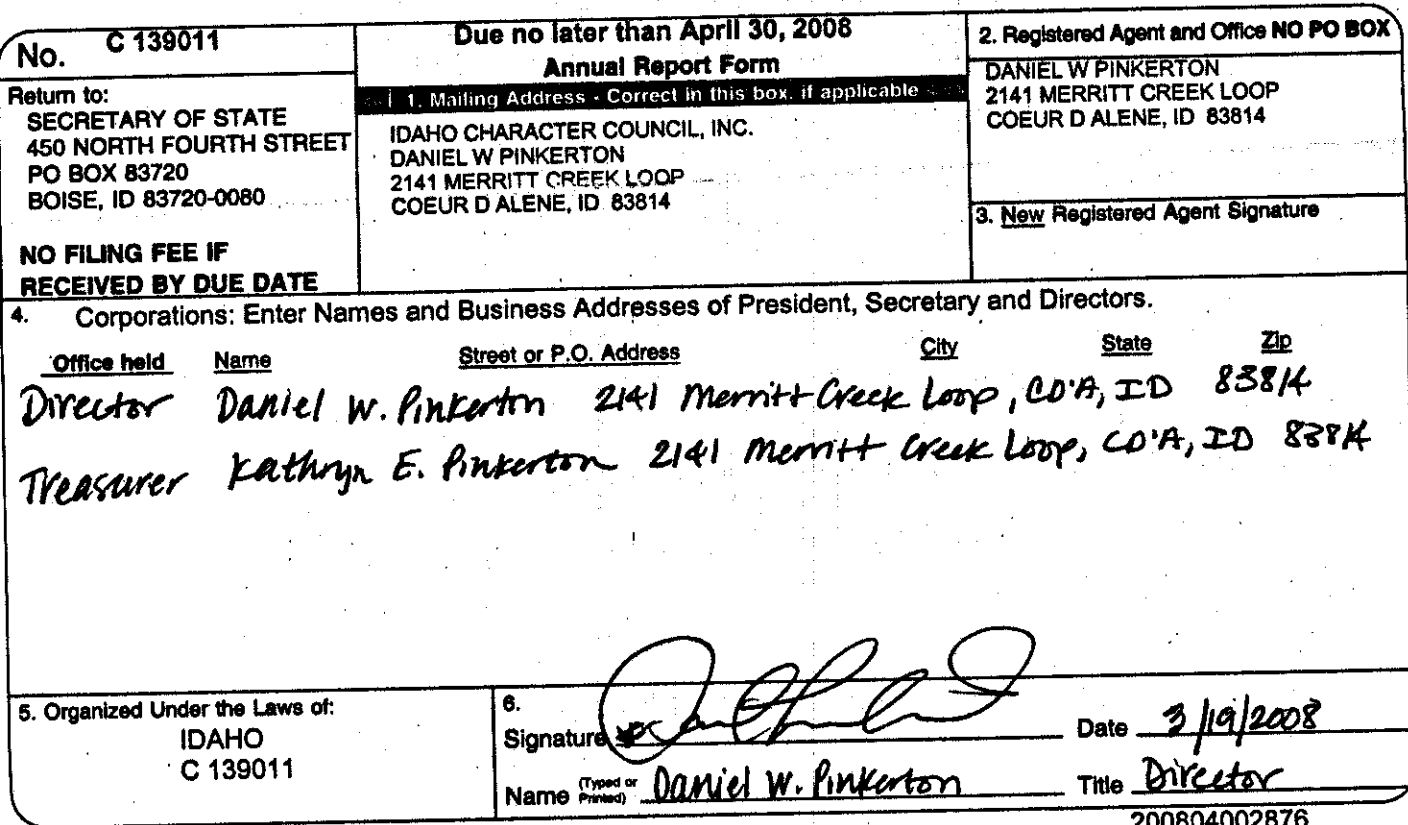 No. C 139011
Return to:
SECRETARY OF STATE
450 NORTH FOURTH STREET
PO BOX 83720
BOISE, ID 83720-0080
NO FILING FEE IF
RECEIVED BY DUE DATE
Due no later than April 30, 2008
Annual Report Form
1. Mailing Address - Correct in this box, if applicable
IDAHO CHARACTER COUNCIL, INC.
DANIEL W PINKERTON
2141 MERRITT CREEK LOOP
COEUR D ALENE, ID 83814
2. Registered Agent and Office NO PO BOX
DANIEL W PINKERTON
2141 MERRITT CREEK LOOP
COEUR D ALENE, ID 83814
3. New Registered Agent Signature
4. Corporations: Enter Names and Business Addresses of President, Secretary and Directors.
Office held Name Street or P.O. Address City State Zip
Director Daniel W. Pinkerton 2141 Merritt Creek Loop, CD'A, ID 83814
Treasurer Kathryn E. Pinkerton 2141 Merritt Creek Loop, CD'A, ID 83814
5. Organized Under the Laws of:
IDAHO
C 139011
6.
Signature Date 3/19/2008
Name (Typed or Printed) Daniel W. Pinkerton Title Director
200804002876